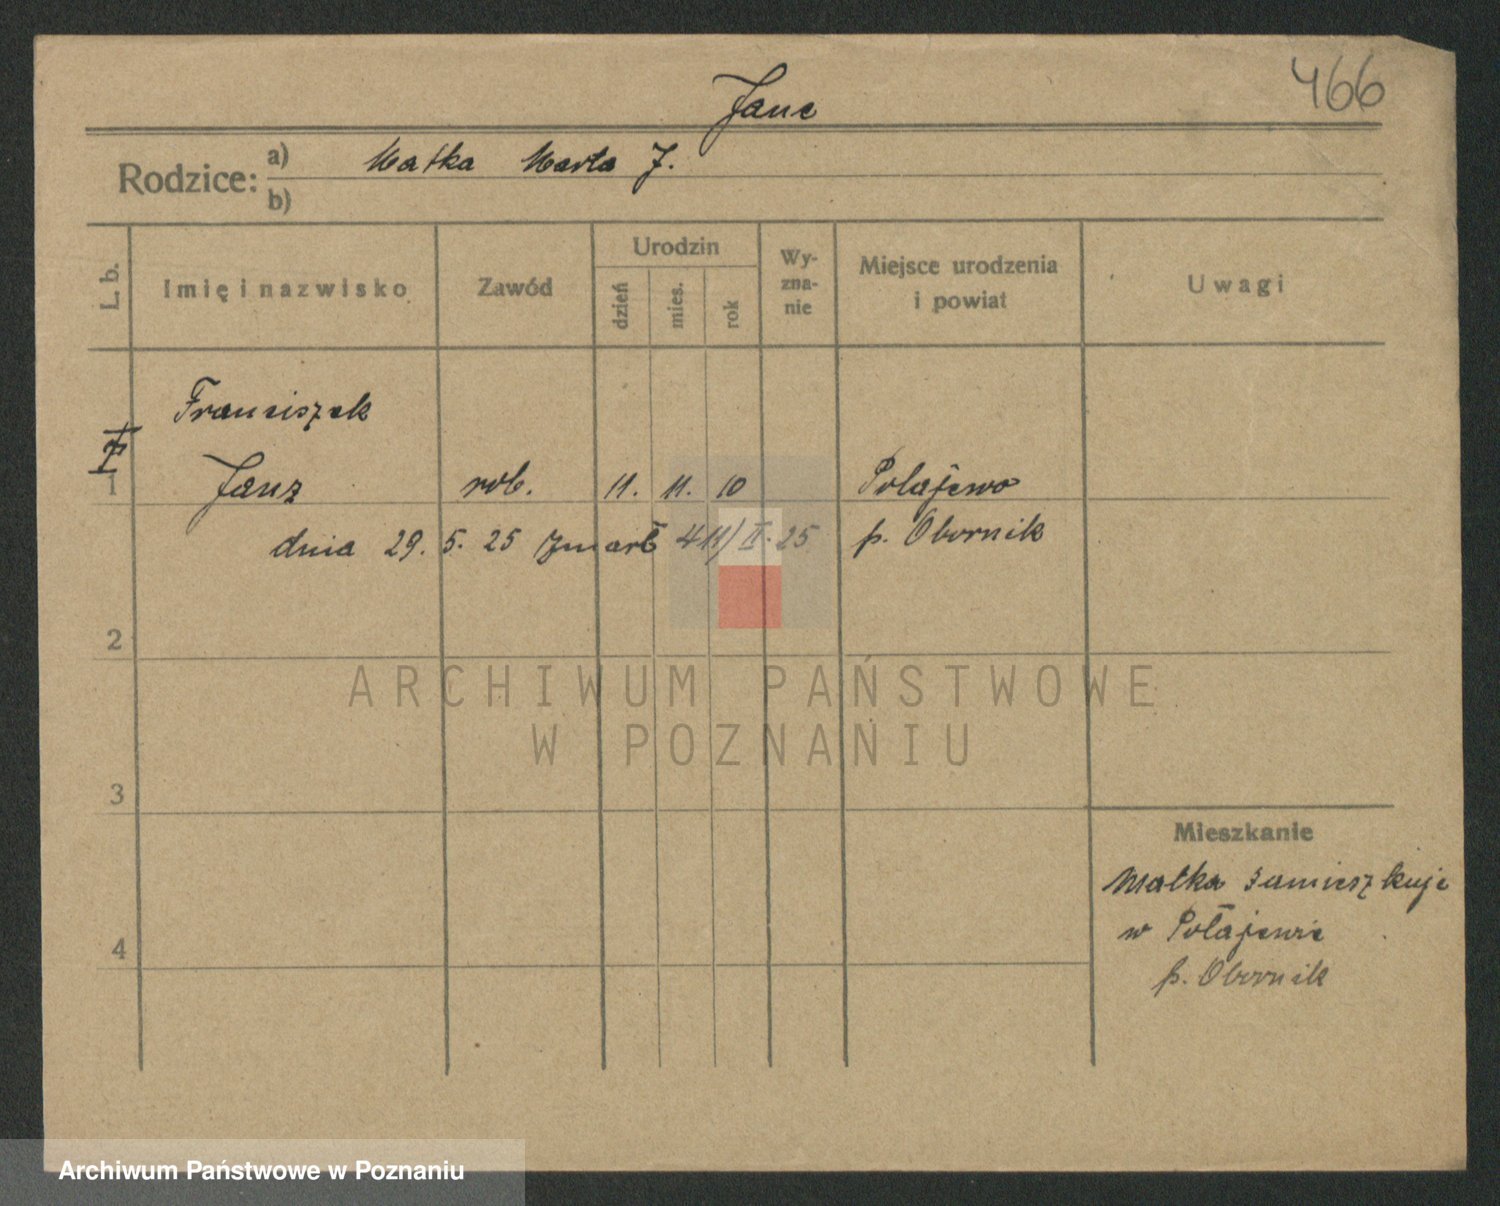 466
Janc
Rodzice: a) Matka Marta J.
b)
L. b. Imię i nazwisko Zawód Urodzin dzień mies. rok Wyzna-nie Miejsce urodzenia i powiat Uwagi
Franciszek
1 Janz rob. 11. 11. 10 Połajewo
dnia 29. 5. 25 zmarł 411/II. 25 p. Obornik
2
3
4
Mieszkanie
Matka zamieszkuje
w Połajewie
p. Obornik
ARCHIWUM PAŃSTWOWE
W POZNANIU
Archiwum Państwowe w Poznaniu